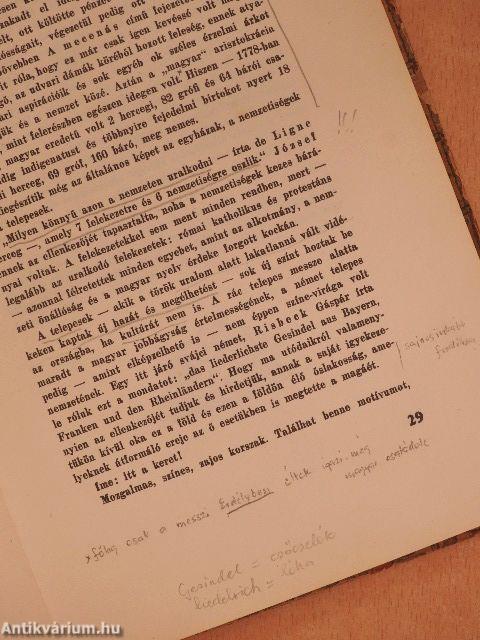 szakadt el
ott költötte pénzét
óságait, végezetül pedig ott
bővebben A mecénás című fejezetben
ít róla, hogy ez már csak igen kevéssé volt ma-
gó, az udvari dámák köréből hozott feleség, ennek atya-
ari aspirációik és sok egyéb ok széles érzelmi árkot
jük és a nemzet közé. Aztán a „magyar" arisztokrácia
, mint felerészben egészen idegen volt. Hiszen — 1778-ban
magyar eredetű volt 2 hercegi, 82 grófi és 64 bárói csa-
dig indigenatust és többnyire fejedelmi birtokot nyert 18
i herceg, 69 gróf, 160 báró, meg nemes.
egészítik még az általános képet az egyházak, a nemzetiségek
a telepesek.
„Milyen könnyű azon a nemzeten uralkodni — írta de Ligne
herceg —, amely 7 felekezetre és 6 nemzetiségre oszlik." József
ennek az ellenkezőjét tapasztalta, noha a nemzetiségek kezes bárá-
nyai voltak. A felekezetekkel sem ment minden rendben, mert —
legalább az uralkodó felekezetek: római katholikus és protestáns
— azonnal félretettek minden egyebet, amint az alkotmány, a nem-
zeti önállóság és a magyar nyelv érdeke forgott kockán.
A telepesek — akik a török uralom alatt lakatlanná vált vidé-
keken kaptak új hazát és megélhetést — sok új színt hoztak be
az országba, ha kultúrát nem is. A rác telepes messze alatta
maradt a magyar jobbágyság értelmességének, a német telepes
pedig — amint elképzelhető is — nem éppen színe-virága volt
nemzetének. Egy itt járó svájci német, Risbeck Gáspár írta
le rólok ezt a mondatot: „das liederlichste Gesindel aus Bayern,
Franken und den Rheinländern". Hogy ma utódaikról valameny-
nyien az ellenkezőjét tudjuk és hirdetjük, annak a saját igyekeze-
tükön kívül oka ez a föld és ezen a földön élő őslakosság, ame-
lyeknek átformáló ereje az ő esetükben is megtette a magáét.
Íme: itt a keret!
Mozgalmas, színes, zajos korszak. Találhat benne motívumot,
29
!!!
főleg csak a messzi Erdélyben éltek igazi, még
magyar családok
Gesindel = csőcselék
liederlich = léha
Antikvárium.hu